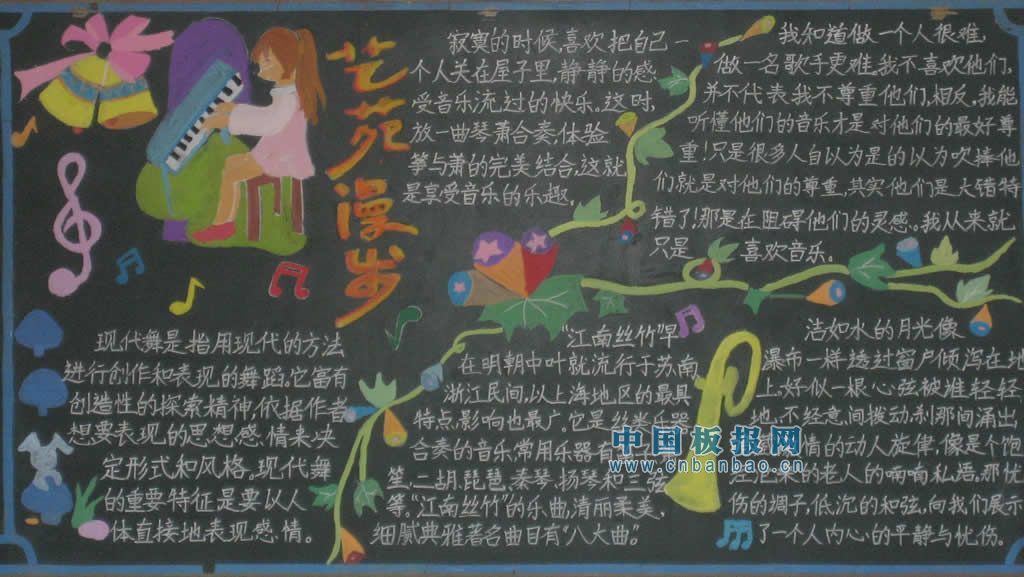 艺苑漫步
寂寞的时候,喜欢把自己一
个人关在屋子里,静静的感
受音乐流过的快乐。这时,
放一曲琴萧合奏,体验
筝与萧的完美结合,这就
是享受音乐的乐趣。
我知道做一个人很难,
做一名歌手更难。我不喜欢他们,
并不代表我不尊重他们,相反,我能
听懂他们的音乐才是对他们的最好尊
重!只是很多人自以为是的以为吹捧他
们就是对他们的尊重,其实他们是大错特
错了!那是在阻碍他们的灵感。我从来就
只是喜欢音乐。
现代舞是指用现代的方法
进行创作和表现的舞蹈。它富有
创造性的探索精神,依据作者
想要表现的思想感情来决
定形式和风格。现代舞
的重要特征是要以人
体直接地表现感情。
“江南丝竹”早
在明朝中叶就流行于苏南
浙江民间,以上海地区的最具
特点,影响也最广。它是丝类乐器
合奏的音乐,常用乐器有
笙,二胡,琵琶,秦琴,扬琴和三弦
等,“江南丝竹”的乐曲,清丽柔美,
细腻典雅著名曲目有“八大曲”。
洁如水的月光像
瀑布一样透过窗户倾泻在地
上。好似一根心弦被谁轻轻
地、不经意间拨动,刹那间涌出
情的动人旋律,像是个饱
经沧桑的老人的喃喃私语。那忧
伤的调子,低沉的和弦,向我们展示
了一个人内心的平静与忧伤。
中国板报网
www.cnbanbao.cn